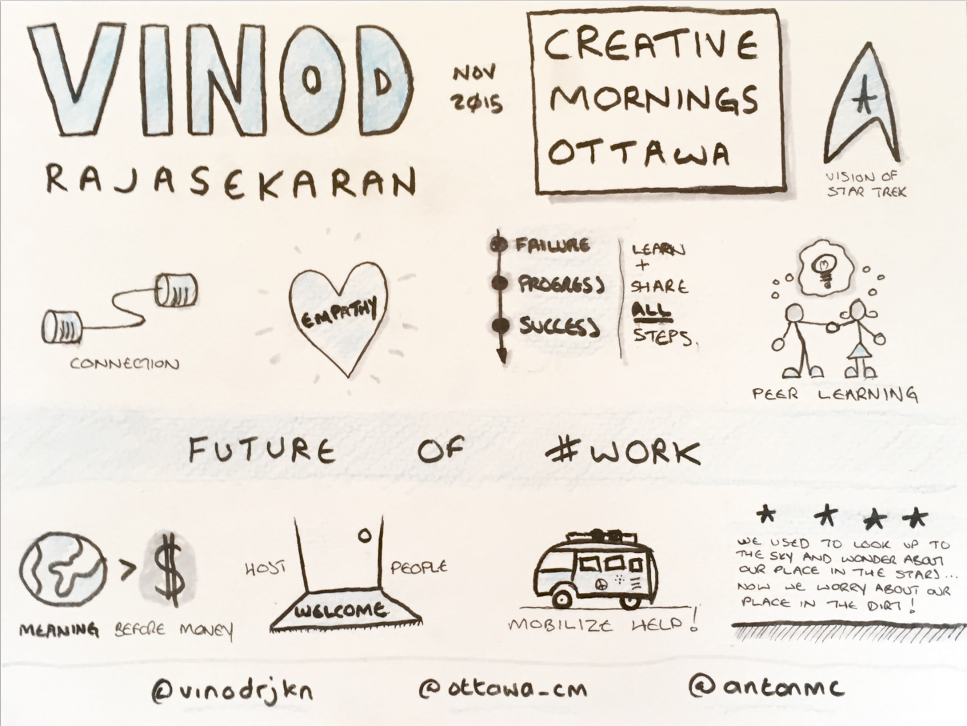 VINOD
RAJASEKARAN
NOV
2015
CREATIVE
MORNINGS
OTTAWA
VISION OF
STAR TREK
CONNECTION
EMPATHY
FAILURE
PROGRESS
SUCCESS
LEARN
+
SHARE
ALL
STEPS.
PEER LEARNING
FUTURE OF #WORK
> $
MEANING BEFORE MONEY
HOST PEOPLE
WELCOME
MOBILIZE HELP!
WE USED TO LOOK UP TO
THE SKY AND WONDER ABOUT
OUR PLACE IN THE STARS...
NOW WE WORRY ABOUT OUR
PLACE IN THE DIRT!
@vinodrjkn @ottawa_cm @antonmc